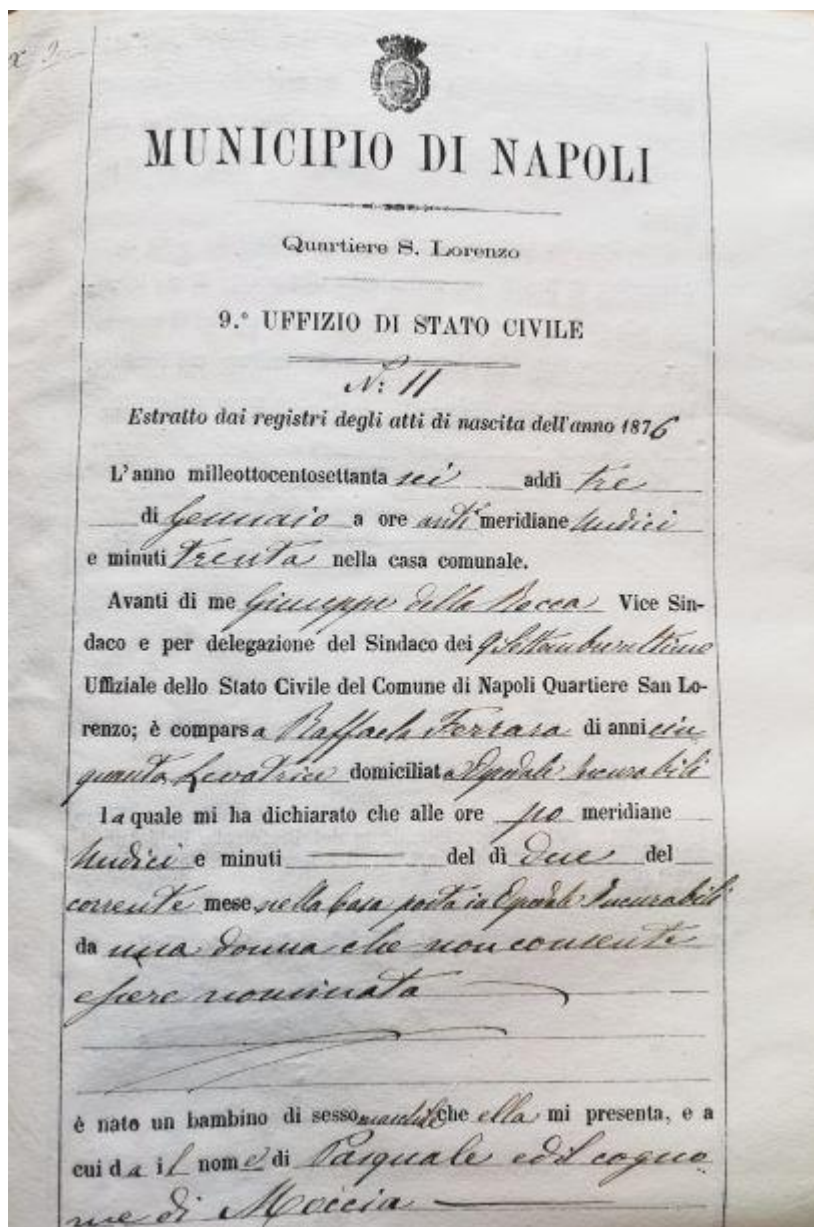 MUNICIPIO DI NAPOLI
Quartiere S. Lorenzo
9.° UFFIZIO DI STATO CIVILE
N: 11
Estratto dai registri degli atti di nascita dell'anno 1876
L'anno milleottocentosettanta sei addì tre
di Gennaio a ore anti meridiane undici
e minuti trenta nella casa comunale.
Avanti di me Giuseppe della Rocca Vice Sin-
daco e per delegazione del Sindaco dei 9 Settembre ultimo
Uffiziale dello Stato Civile del Comune di Napoli Quartiere San Lo-
renzo; è comparsa Raffaela Ferrara di anni cin
quanta Levatrice domiciliata Ospedale Incurabili
la quale mi ha dichiarato che alle ore po meridiane
undici e minuti del dì due del
corrente mese nella casa posta in Ospedale Incurabili
da una donna che non consente
essere nominata
è nato un bambino di sesso maschile che ella mi presenta, e a
cui da il nome di Pasquale ed il cogno
me di Moccia